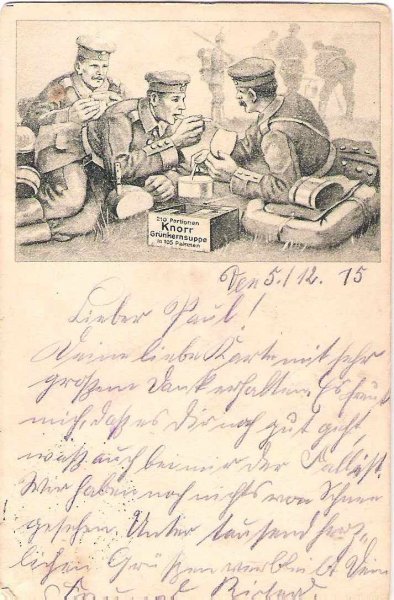 210 Portionen
Knorr
Grünkernsuppe
in 105 Paketen
Den 5./12. 15
Lieber Paul!
Deine liebe Karte mit sehr
großem Dank erhalten. Es freut
mich, daß es Dir noch gut geht,
was auch bei mir der Fall ist.
Wir haben noch nichts von Schnee
gesehen. Unter tausend herz-
lichen Grüßen verbleibt Dein
Freund